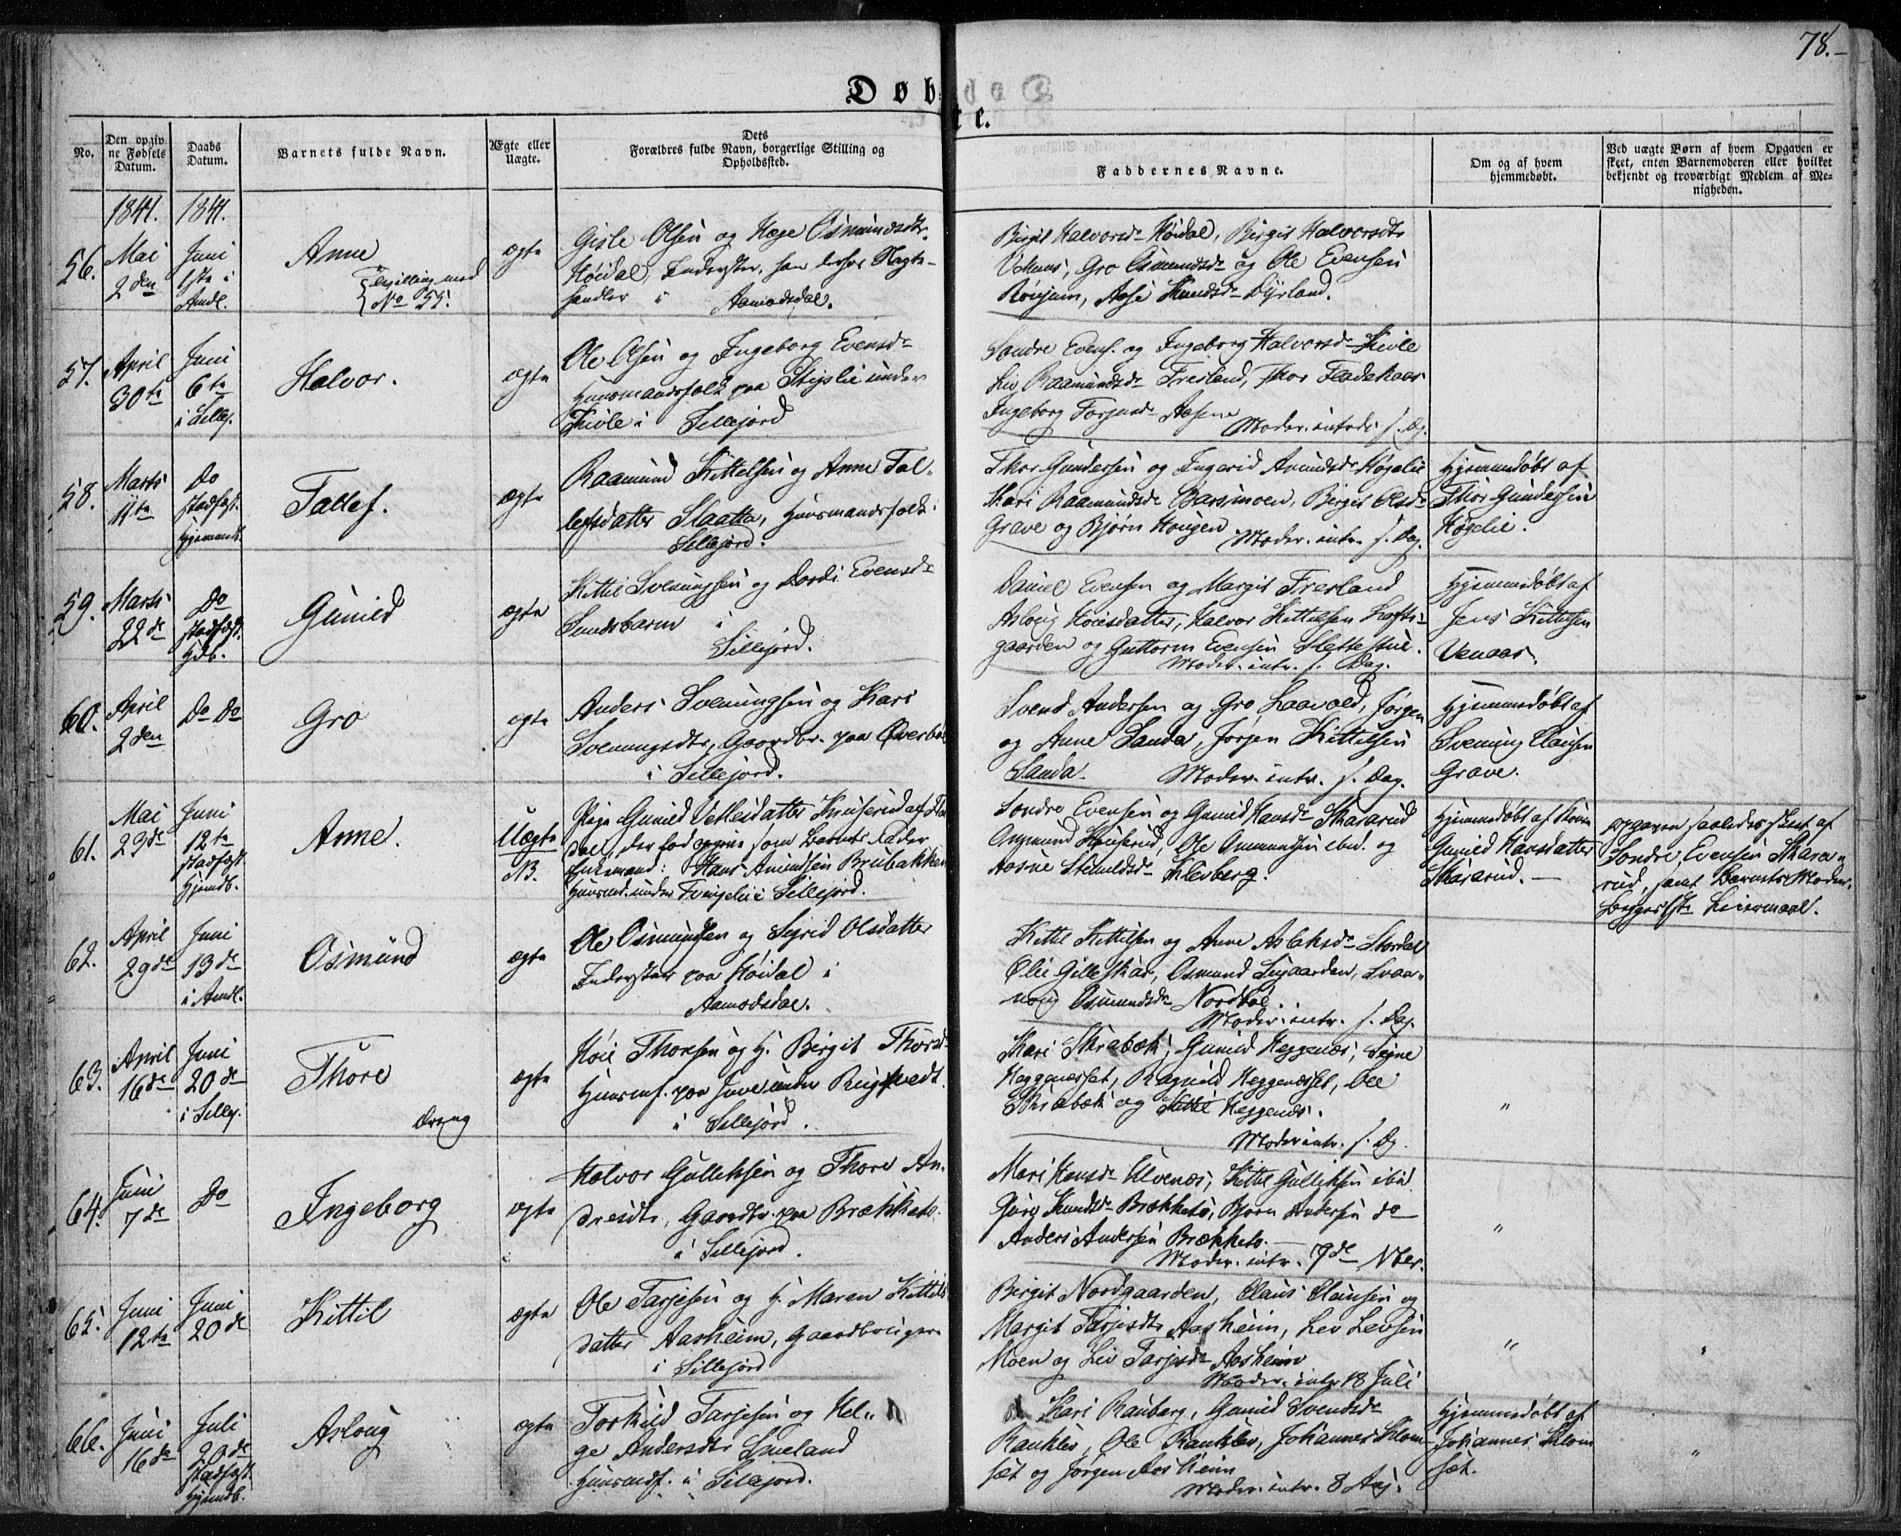 78.-
Døbte.
No.
Den opgivne Fødsels Datum.
Daabs Datum.
Barnets fulde Navn.
Ægte eller Uægte.
Dets Forældres fulde Navn, borgerlige Stilling og Opholdssted.
Faddernes Navne.
Om og af hvem hjemmedøbt.
Ved uægte Børn af hvem Opgaven er skeet, enten Barnemoderen eller hvilket bekjendt og troværdigt Medlem af Menigheden.
1841. 1841.
56.
Mai
2den
Juni
1ste i
Amdl.
Anne
Tvilling med
No 55.
ægte
Gisle Olsen og Hæge Osmundsdtr.
Høidal, Inderster,
handler i Aamodsdal.
Birgit Halvorsd. Høidal, Birgit Halvorsdtr
Gro Osmundsdr og Ole Evensen
Rønjum, Aase Knudsdr Dyrland.
57.
April
30te
Juni
6te
i Sillej.
Halvor.
ægte
Ole Olsen og Ingeborg Evensdr
Huusmandsfolk paa under
Kivle i Sillejord
Sondre Evens. og Ingeborg Halvorsdr Kivle
Liv Raamundsdr Frisland, Thor Fladekaas
Ingeborg Torjusdr Aasene
Moder. introd. s. Dg.
58.
Marts
11te
Do
stadfæst.
hjemmed.
Tallef.
ægte
Raamund Kittelsen og Anne Tal-
lefsdatter Slaatta, Huusmandsfolk i
Sillejord.
Thor Gundersen og Ingerid Amundsdr Høgelie
Kari Raamundsdr Barsmoen, Birgit Olsdr
Grave og Bjørn Hougen
Moder. intr. s. Dag.
Hjemmedøbt af
Thor Gundersen
Høgelie.
59.
Marts
22de
Do
stadfæst.
Hdb.
Gunild
ægte
Kittil Svenungsen og Dordi Evensdr
Sundsbarm i
Sillejord.
Daniel Evensen og Margit Frisland
Asloug Høiesdatter, Halvor Kittelsen
gaarden og Guttorm Evensen Slettestue.
Moder. intr. s. Dag.
Hjemmedøbt af
Jens Kittelsen
Venaas.
60.
April
2den
Do Do
Gro
ægte
Anders Svenungsen og Kari
Svenungsdtr, Gaardbr. paa
i Sillejord.
Svend Andersen og Gro Laavold, Jørgen
og Anne Sanda, Jørgen Kittelsen
Sanda. Moder. intr. s. Dag.
Hjemmedøbt af
Svenung Clausen
Grave.
61.
Mai
23de
Juni
12te
stadfæst.
Hjemdb.
Anne.
Uægte
NB.
Pige Gunild Vetlesdatter
som Barnets Fader
Hans Amundsen Brubakken
Huusmd. under i Sillejord.
Sondre Evensen og Gunild Hansdr Skararud
Ole Osmundsen ibid. og
Klevberg.
Hjemmedøbt af
Gunild Hansdatter
Skararud.
Opgaven saaledes skeet af
Sondre Evensen Skara-
rud, samt Barnets Moder.
begges 1ste Leiermaal.
62.
April
29de
Juni
13de
i Amdl.
Osmund
ægte
Ole Osmundsen og Sigrid Olsdatter
Inderster paa Høidal i
Aamodsdal.
Kittil Kittilsen og Anne Aslaksdr Stordal
Olie Gilleskar, Osmund Lygaarden, Svan-
noug Osmundsdr Nordbøe.
Moder. intr. s. Dag.
63.
April
16de
Juni
20de
i Sillej.
Thore
Dreng
ægte
Høie Thoresen og H. Birgit Thorsd.
Huusmf. paa under
i Sillejord.
Kari Skrabæk, Gunild Heggenæs, Signe
Heggenæsset, Ragnild Heggenæsset, Ole
Skrabæk og Kittil Heggenæs.
Moder intr. s. Dg.
"
64.
Juni
7de
Do
Ingeborg
ægte
Halvor Gulliksen og Thore An-
dresdtr, Gaardbr. paa Brækketo.
i Sillejord.
Mari Hansdr Ulvenæs, Kittil Gulliksen ibid
Guro Knudsdr Brækketo, Bjørn Andersen do
Anders Andersen Brækketo.
Moder. intr. 7de Nber.
"
65.
Juni
12te
Juni
20de
Kittil
ægte
Ole Tarjesen og H. Maren Kittils
datter Aasheim, Gaardbrugere
i Sillejord
Birgit Nordgaarden, Claus Clausen og
Margit Tarjesdtr Aasheim, Lev Levsen
Moen og Liv Tarjesdr Aasheim
Moder. intr. 18 Juli
"
66.
Juni
16de
Juli
20de
stadfæst.
Hjemdb.
Asloug
ægte
Torkild Tarjesen og Hel-
ge Andersdtr Smeland
Huusmdf. i Sillejord.
Kari Rauberg, Gunild Svendsdr
Rauklev, Ole Rauklev, Johannes Klom-
sæt og Jørgen Aasheim
Moder. intr. 8 Aug.
Hjemmedøbt af
Johannes Klom
sæt.
"